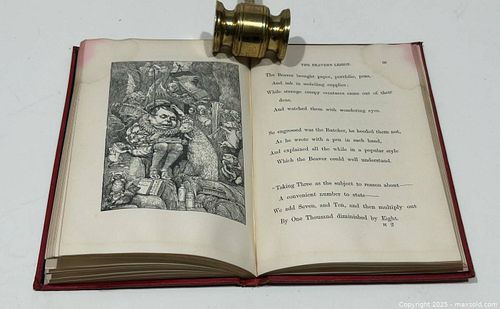 THE BEAVER'S LESSON.
The Beaver brought paper, portfolio, pens,
And ink in unfailing supplies:
While strange creepy creatures came out of their
dens,
And watched them with wondering eyes.
So engrossed was the Butcher, he heeded them not,
As he wrote with a pen in each hand,
And explained all the while in a popular style
Which the Beaver could well understand.
"Taking Three as the subject to reason about—
A convenient number to state—
We add Seven, and Ten, and then multiply out
By One Thousand diminished by Eight.
H 2
Copyright 2025 - maxsold.com